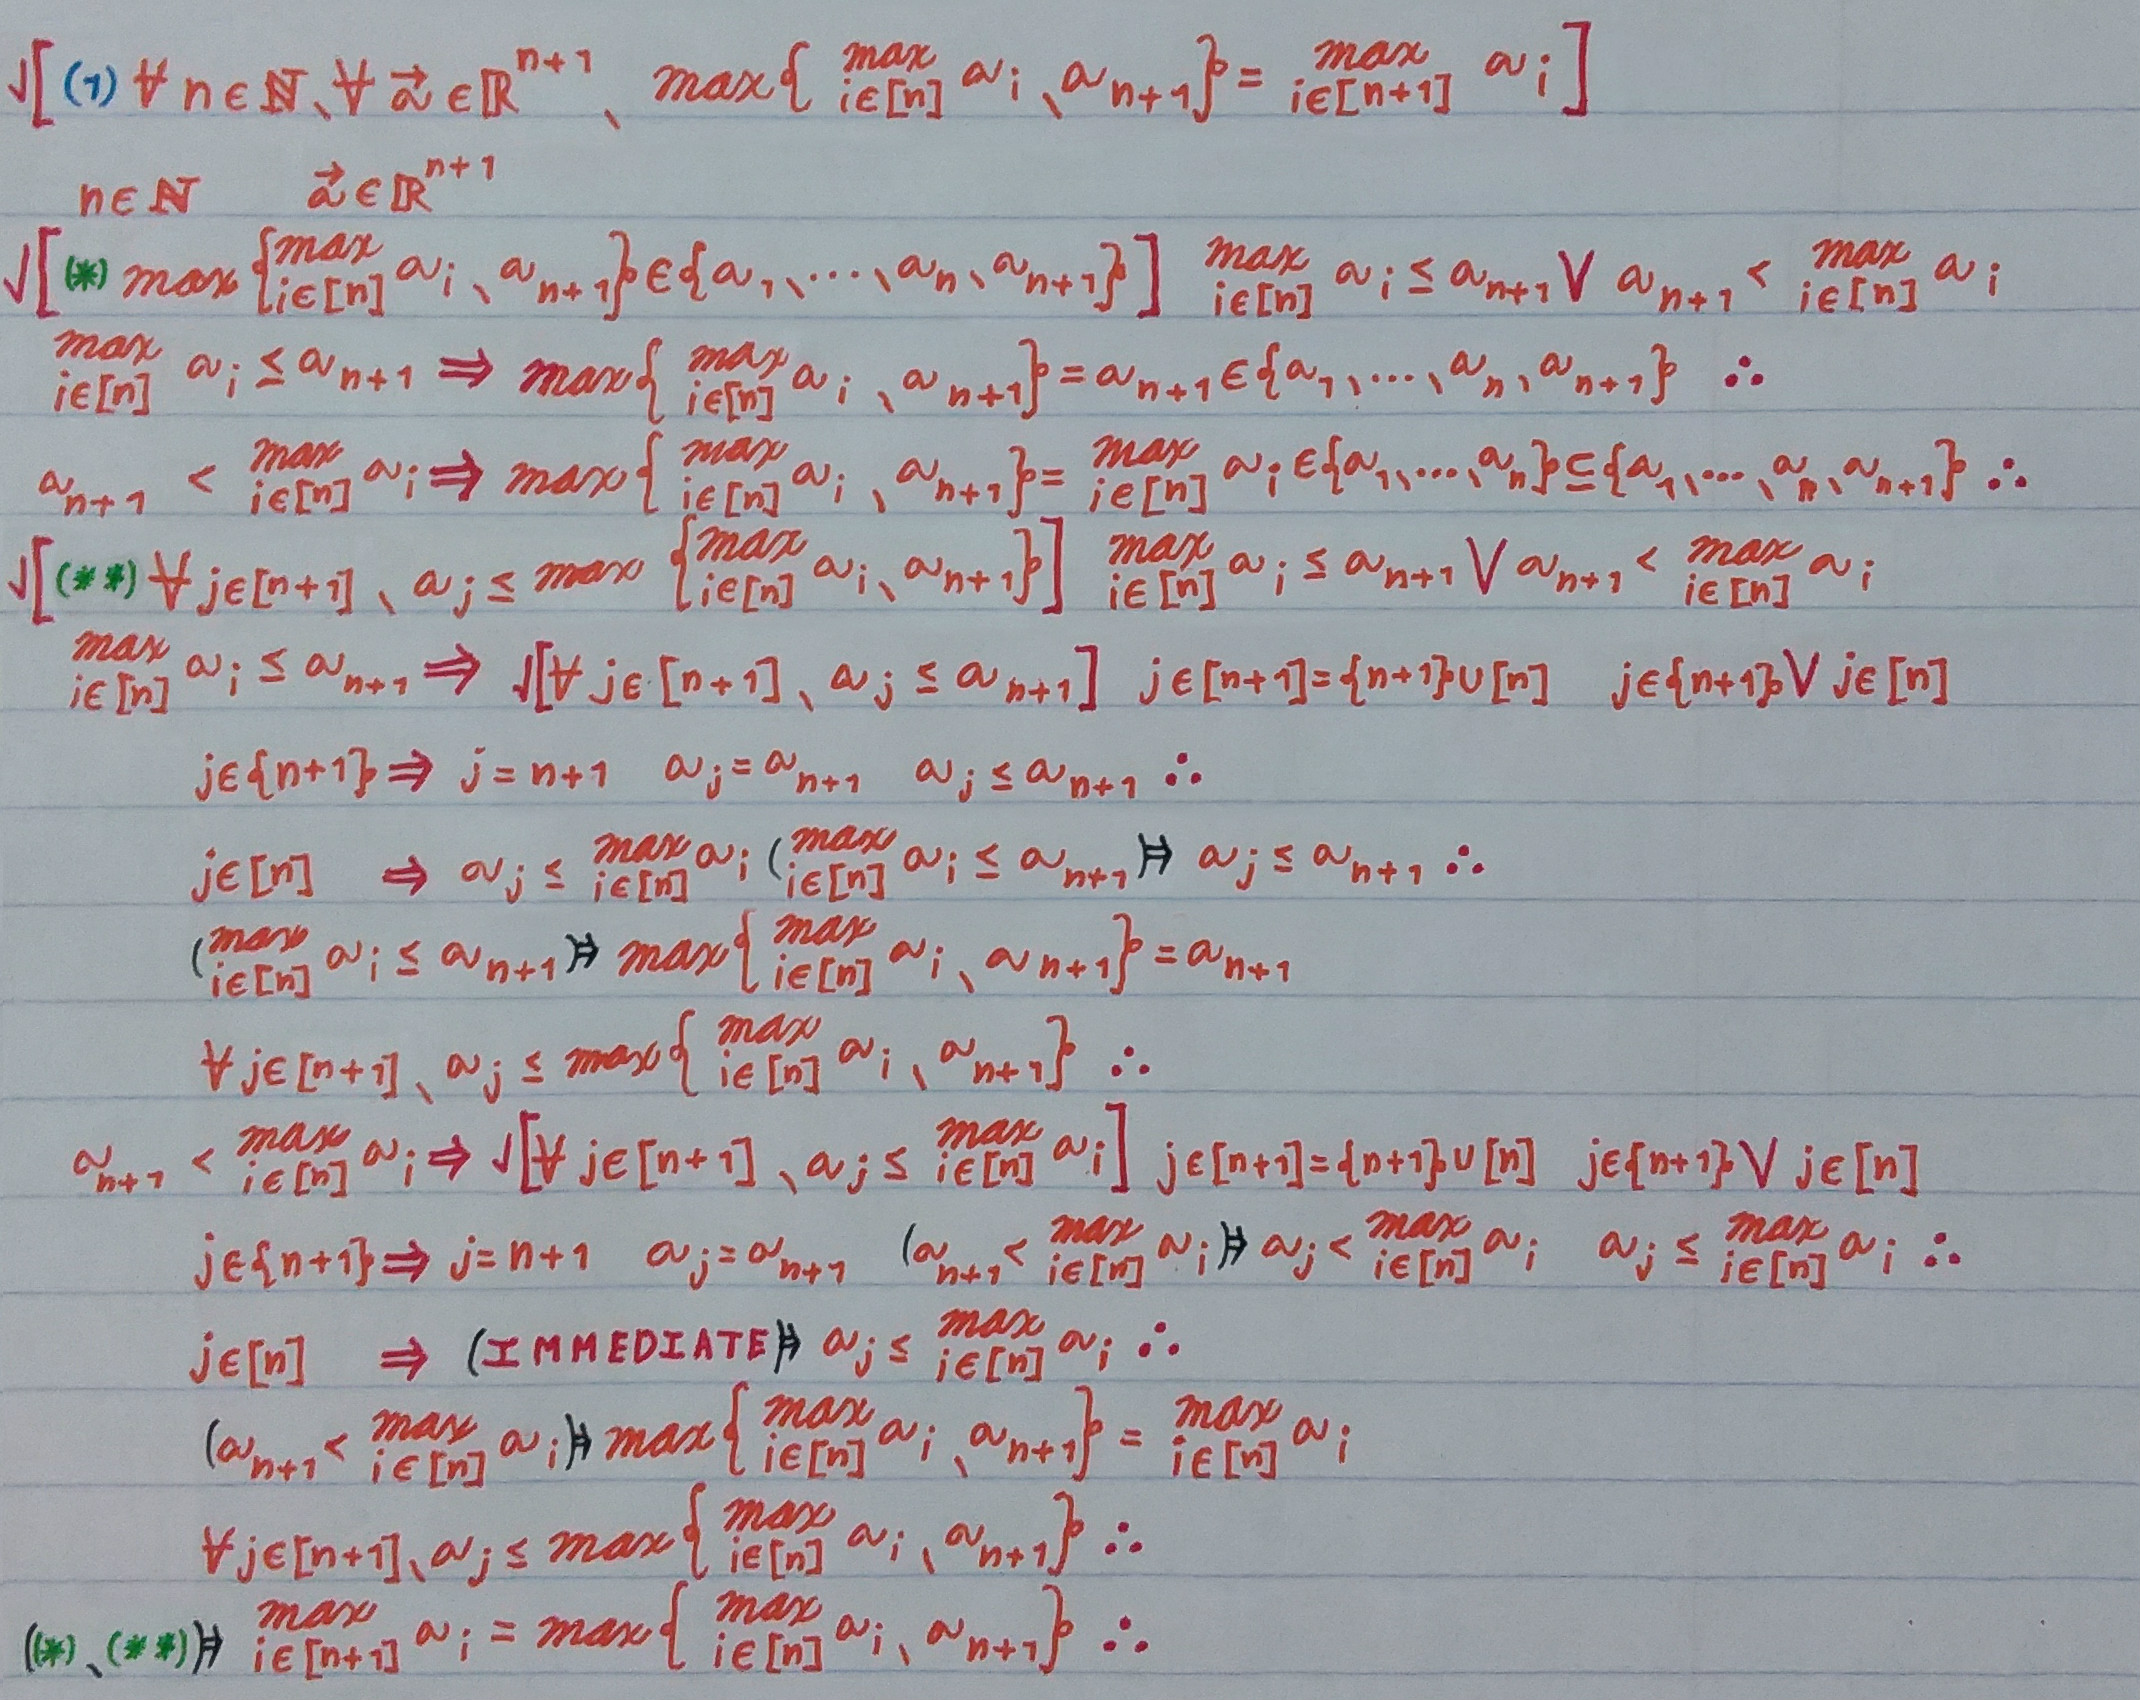 √[(1) ∀ n∈ℕ、∀ a⃗ ∈ℝ^{n+1}、 max{ max_{i∈[n]} a_i、a_{n+1}} = max_{i∈[n+1]} a_i]
n∈ℕ a⃗∈ℝ^{n+1}
√[(*) max {max_{i∈[n]} a_i、a_{n+1}}∈{a_1、⋯、a_n、a_{n+1}}] max_{i∈[n]} a_i ≤ a_{n+1} ∨ a_{n+1} < max_{i∈[n]} a_i
max_{i∈[n]} a_i ≤ a_{n+1} ⇒ max{ max_{i∈[n]} a_i、a_{n+1}} = a_{n+1}∈{a_1、…、a_n、a_{n+1}} ∴
a_{n+1} < max_{i∈[n]} a_i ⇒ max{ max_{i∈[n]} a_i、a_{n+1}} = max_{i∈[n]} a_i∈{a_1、…、a_n}⊆{a_1、…、a_n、a_{n+1}} ∴
√[(**) ∀ j∈[n+1]、a_j ≤ max {max_{i∈[n]} a_i、a_{n+1}}] max_{i∈[n]} a_i ≤ a_{n+1} ∨ a_{n+1} < max_{i∈[n]} a_i
max_{i∈[n]} a_i ≤ a_{n+1} ⇒ √[∀ j∈[n+1]、a_j ≤ a_{n+1}] j∈[n+1]={n+1}∪[n] j∈{n+1}∨ j∈[n]
j∈{n+1}⇒ j=n+1 a_j=a_{n+1} a_j ≤ a_{n+1} ∴
j∈[n] ⇒ a_j ≤ max_{i∈[n]} a_i (max_{i∈[n]} a_i ≤ a_{n+1})⇒ a_j ≤ a_{n+1} ∴
(max_{i∈[n]} a_i ≤ a_{n+1})⇒ max{ max_{i∈[n]} a_i、a_{n+1}} = a_{n+1}
∀ j∈[n+1]、a_j ≤ max{ max_{i∈[n]} a_i、a_{n+1}} ∴
a_{n+1} < max_{i∈[n]} a_i ⇒ √[∀ j∈[n+1]、a_j ≤ max_{i∈[n]} a_i] j∈[n+1]={n+1}∪[n] j∈{n+1}∨ j∈[n]
j∈{n+1}⇒ j=n+1 a_j=a_{n+1} (a_{n+1} < max_{i∈[n]} a_i)⇒ a_j < max_{i∈[n]} a_i a_j ≤ max_{i∈[n]} a_i ∴
j∈[n] ⇒ (IMMEDIATE)⇒ a_j ≤ max_{i∈[n]} a_i ∴
(a_{n+1} < max_{i∈[n]} a_i)⇒ max{ max_{i∈[n]} a_i、a_{n+1}} = max_{i∈[n]} a_i
∀ j∈[n+1]、a_j ≤ max{ max_{i∈[n]} a_i、a_{n+1}} ∴
((*)、(**))⇒ max_{i∈[n+1]} a_i = max{ max_{i∈[n]} a_i、a_{n+1}} ∴